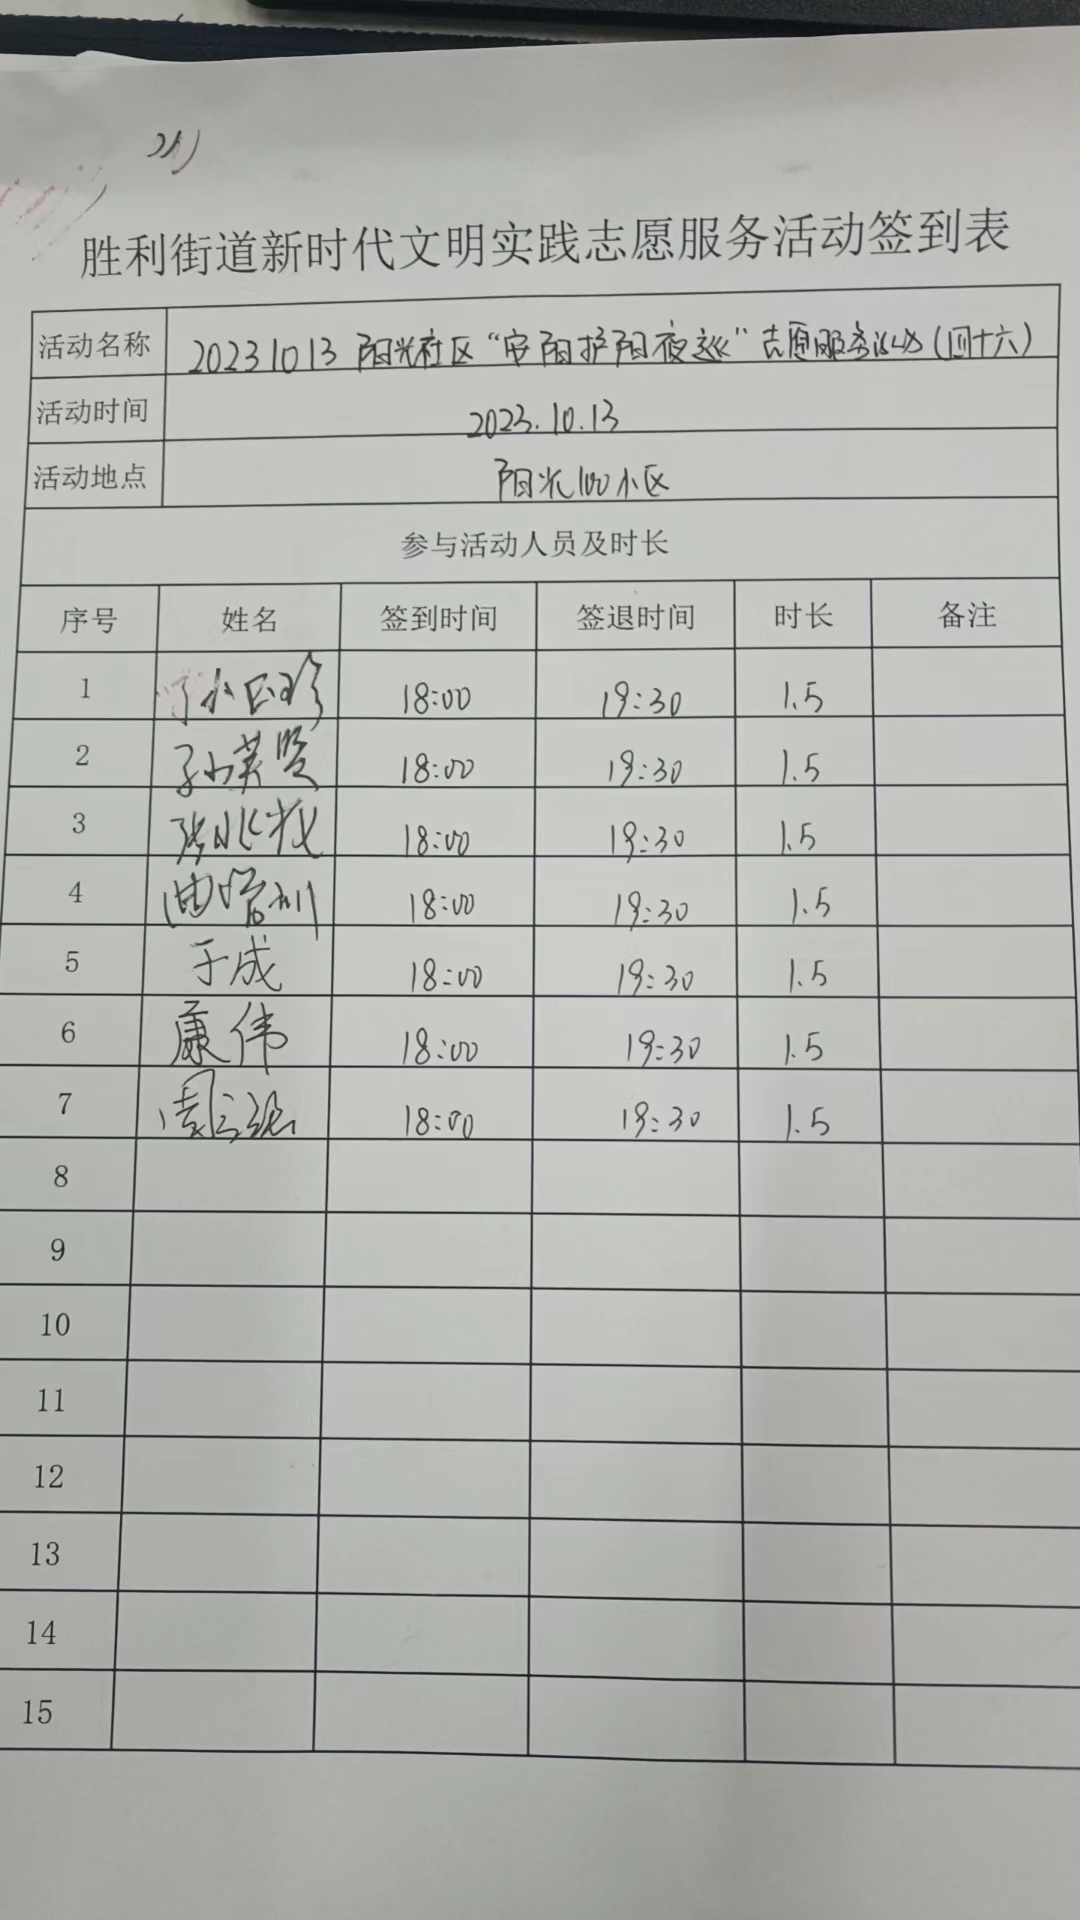 胜利街道新时代文明实践志愿服务活动签到表
活动名称 20231013 阳光社区“安阳护阳夜巡”志愿服务活动(四十六)
活动时间 2023.10.13
活动地点 阳光100小区
参与活动人员及时长
序号 姓名 签到时间 签退时间 时长 备注
1 18:00 19:30 1.5
2 孙英贤 18:00 19:30 1.5
3 18:00 19:30 1.5
4 18:00 19:30 1.5
5 于成 18:00 19:30 1.5
6 康伟 18:00 19:30 1.5
7 18:00 19:30 1.5
8
9
10
11
12
13
14
15